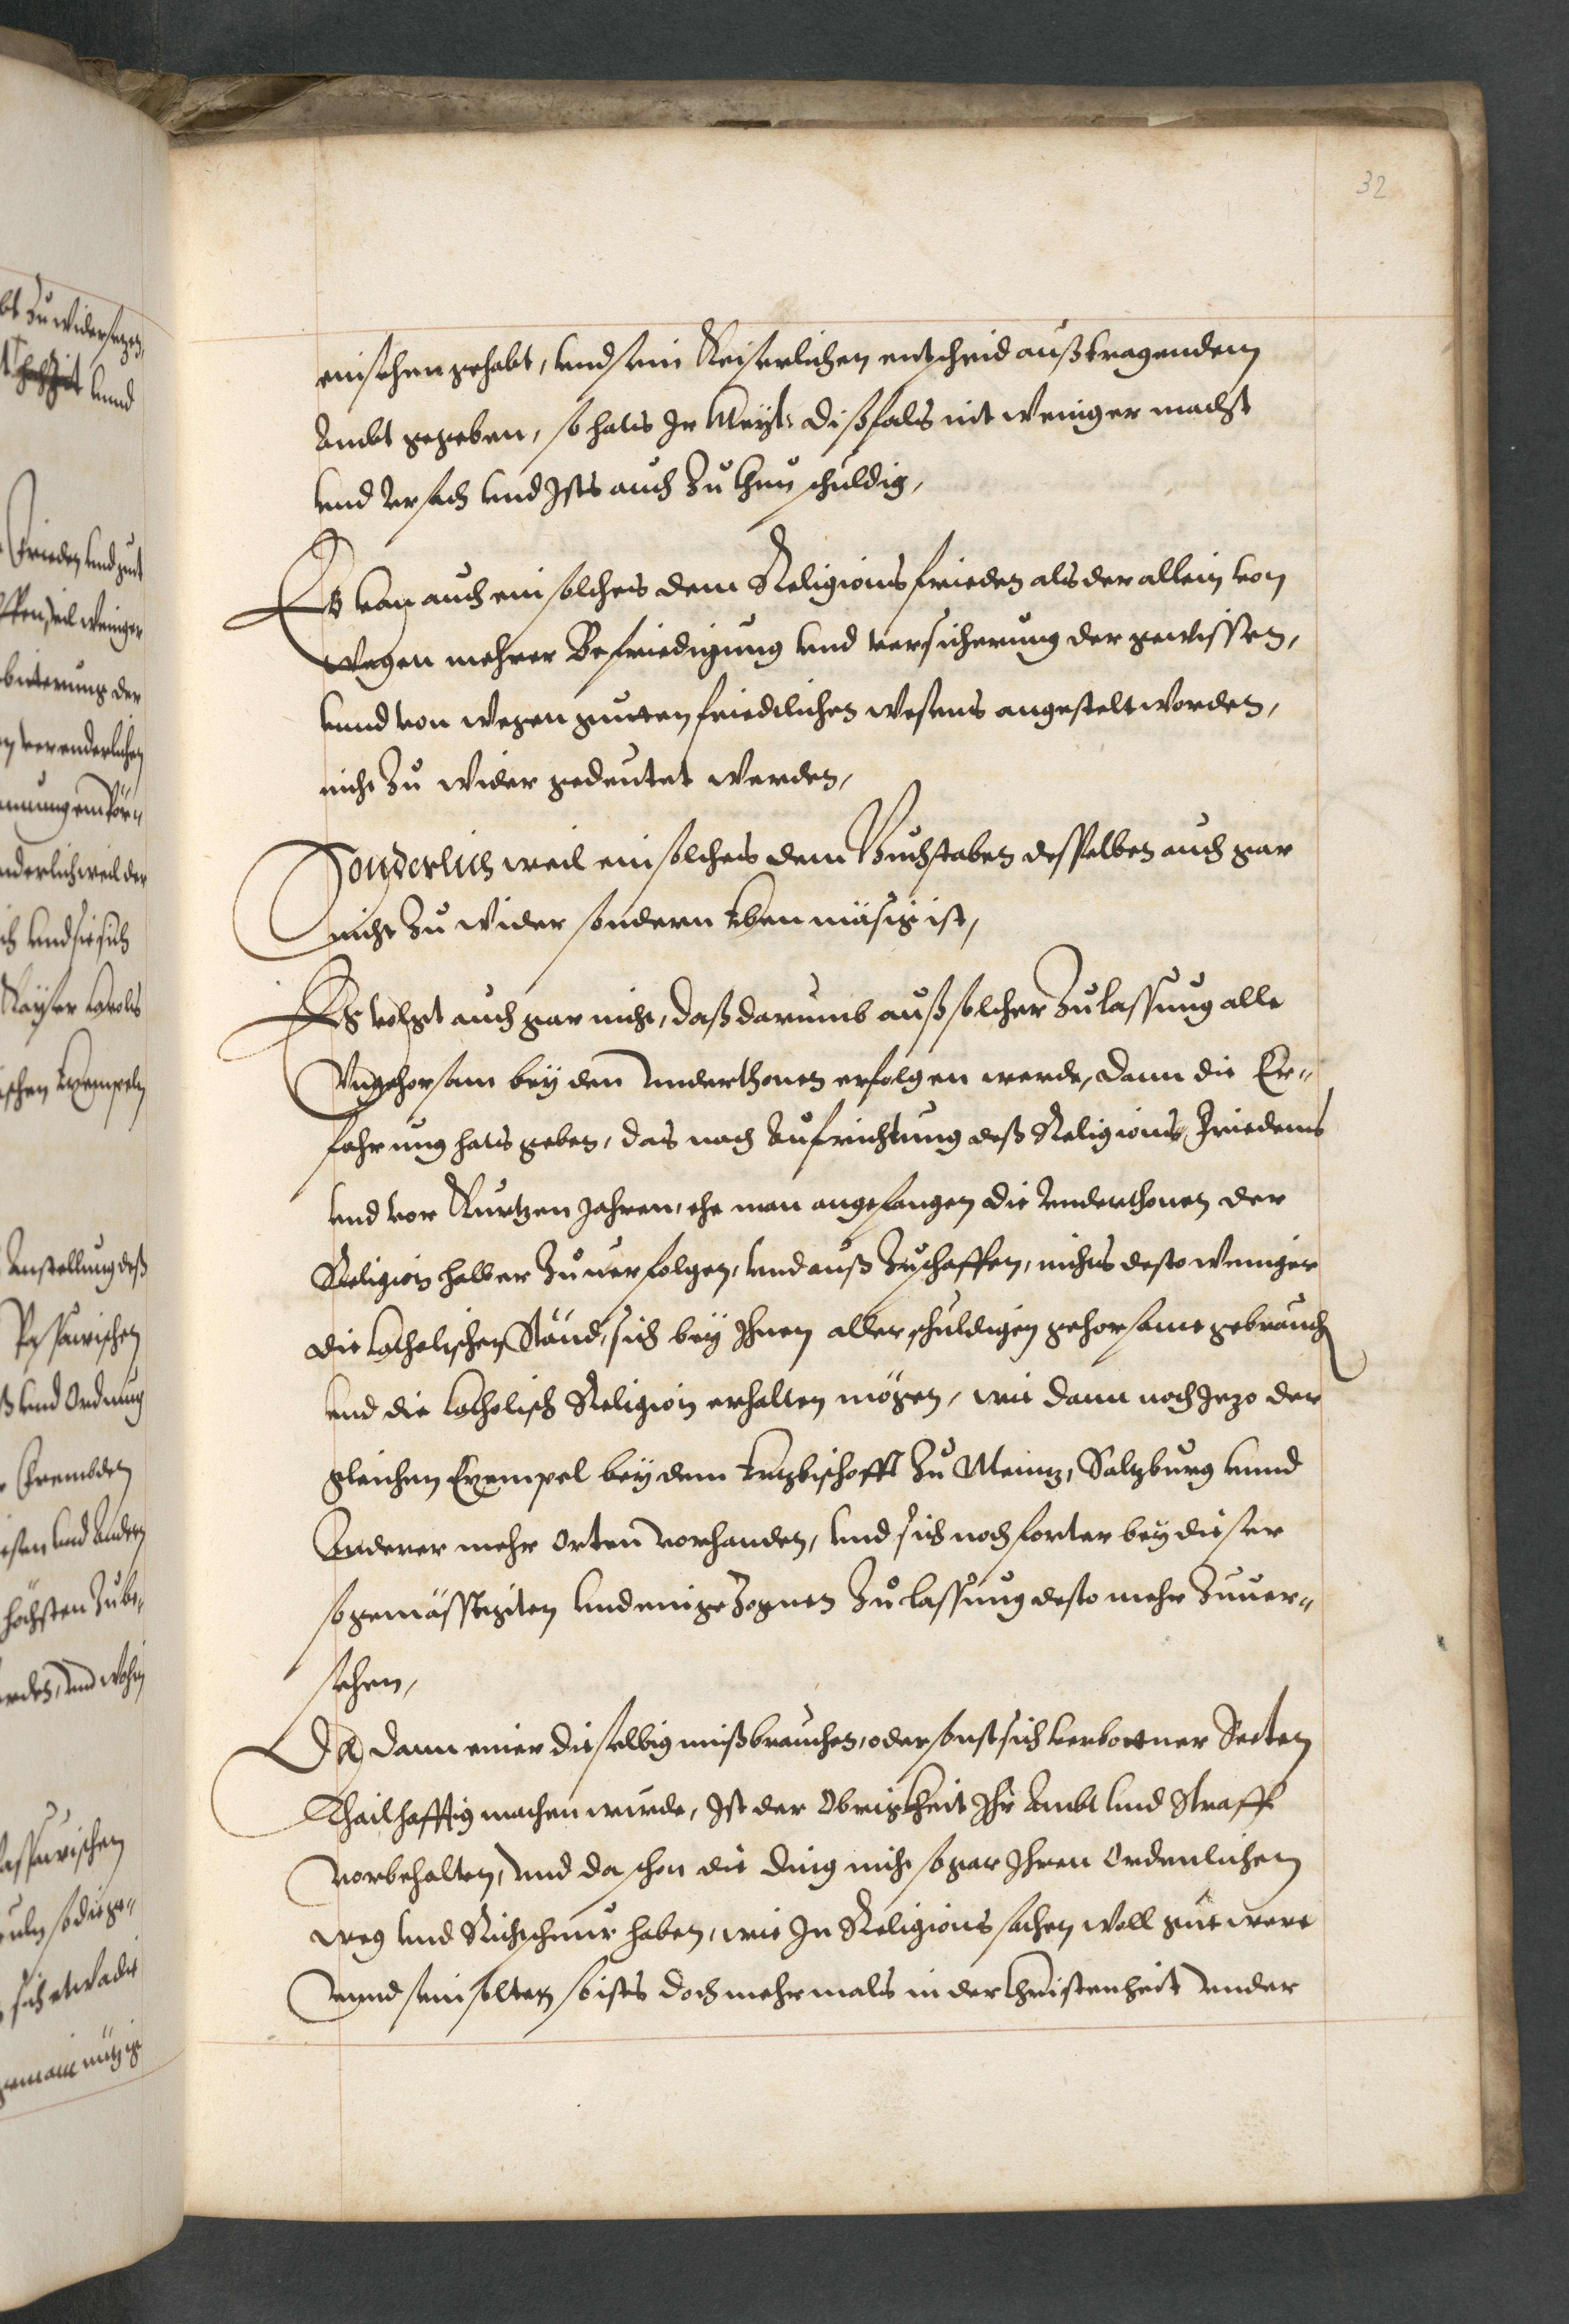 32
einsehen gehabt, vnd sein Keiserlichen entscheid auß tragendem
Ambt gegeben, so hats Ir Mayt: dißfals nit weniger macht
vnd Vrsach vnd Ists auch zu thun schuldig,
Es kan auch ein solches dem Religions frieden als der allein von
wegen mehrer Befriedigung vnd versicherung der gewissen,
vnnd von wegen gutten friedlichen wesens angestelt worden,
nicht zu wider gedeutet werden,
Sonderlich weil ein solches dem Buchstaben desselben auch gar
nicht zu wider sondern eben mäsig ist,
Es volgt auch gar nicht, daß darumb auß solcher Zulassung alle
Vngehorsam bey den Vnderthonen erfolgen werde, dann die Er-
fahrung hats geben, das nach Aufrichtung deß Religions Friedens
vnd vor Kurtzen Jahren, ehe man angefangen die Vnderthonen der
Religion halber zuuerfolgen, vnd auß zuschaffen, nichts desto weniger
die Catholischen Ständ, sich bey Ihnen aller schuldigen gehorsame gebrauch
vnd die Catholisch Religion erhalten mögen, wie dann noch Jezo der
gleichen Exempel bey dem Ertzbischoff zu Meintz, Saltzburg vnnd
Anderer mehr Orten vorhanden, vnd sich noch forter bey dieser
so gemässigten vnd eingezognen Zulassung desto mehr zuuer-
sehen,
Da dann einer dieselbig mißbrauchen, oder sonst sich verbottner Secten
Thailhafftig machen wurde, Ist der Obrigkheit Ihr Ambt vnd Straff
vorbehalten, Vnd da schon die ding nicht so gar Ihren Ordenlichen
weg vnd Richschnur haben, wie In Religions sachen woll gut were
Vnnd sein solten so ists doch mehrmals in der Christenheit Vnder